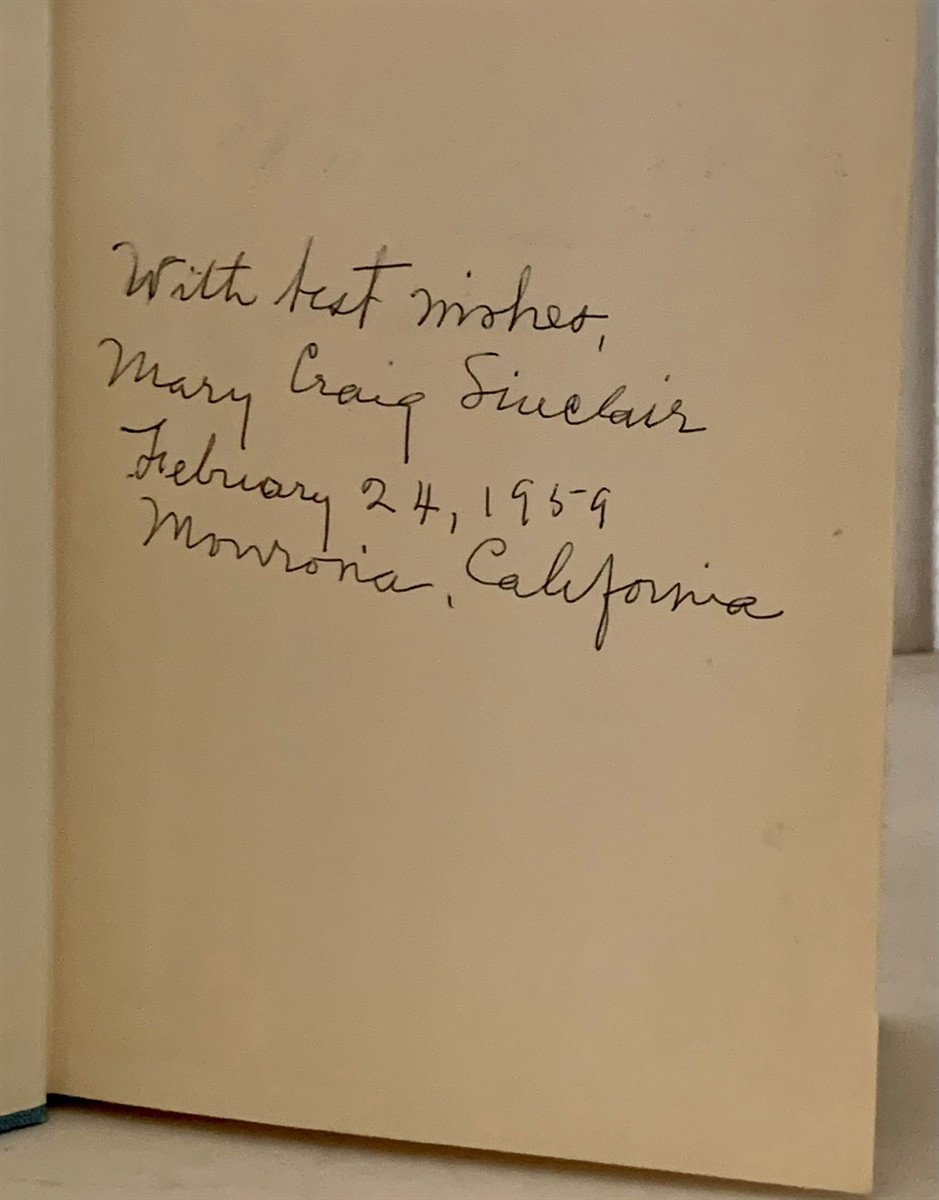 With best wishes,
Mary Craig Sinclair
February 24, 1959
Monrovia, California